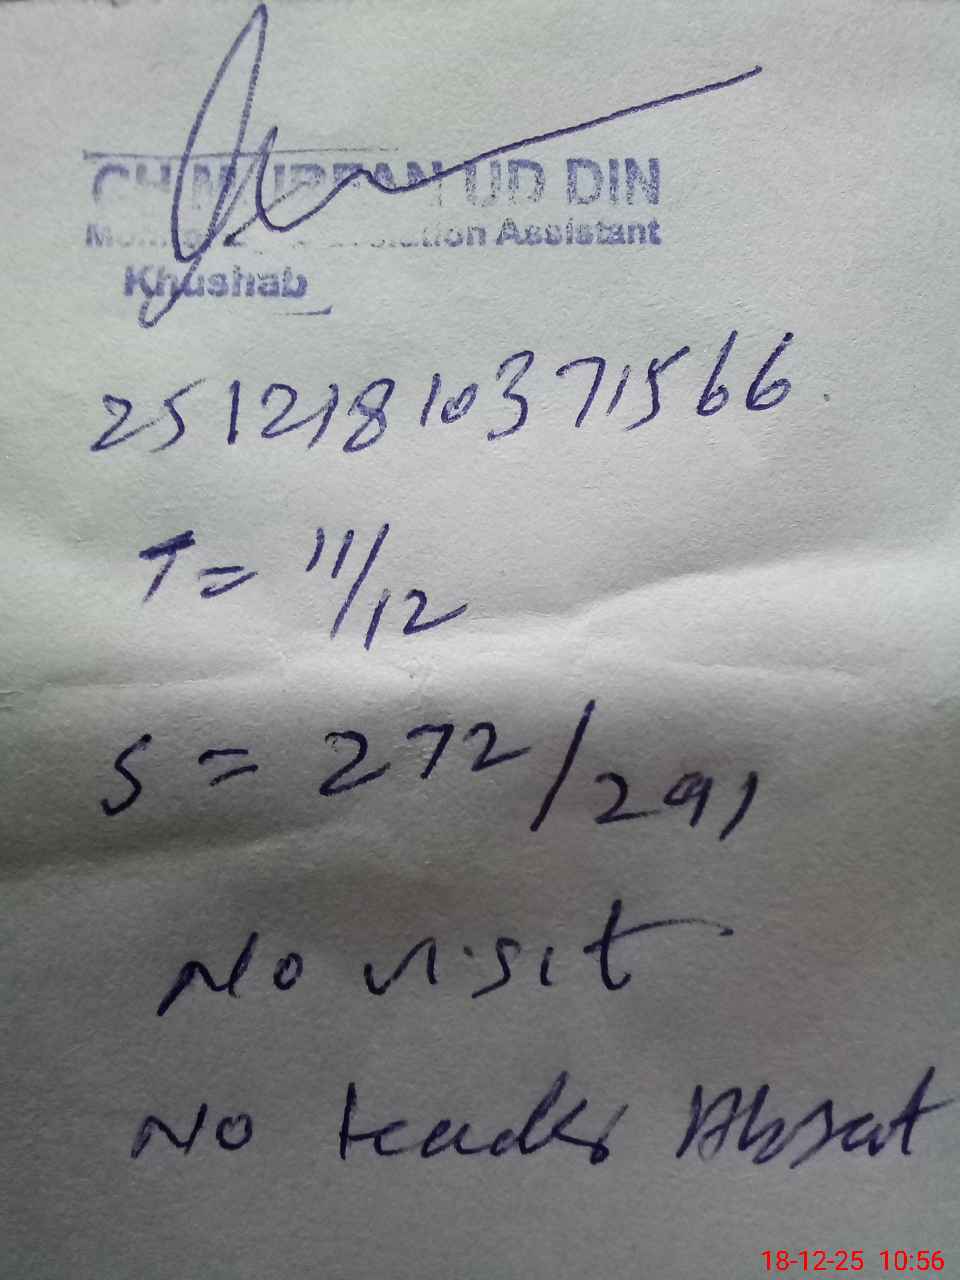 CH M IRFAN UD DIN
Assistant
Khushab
25121810371566
T = 11/12
S = 272/291
No visit
No teacher Absent
18-12-25 10:56